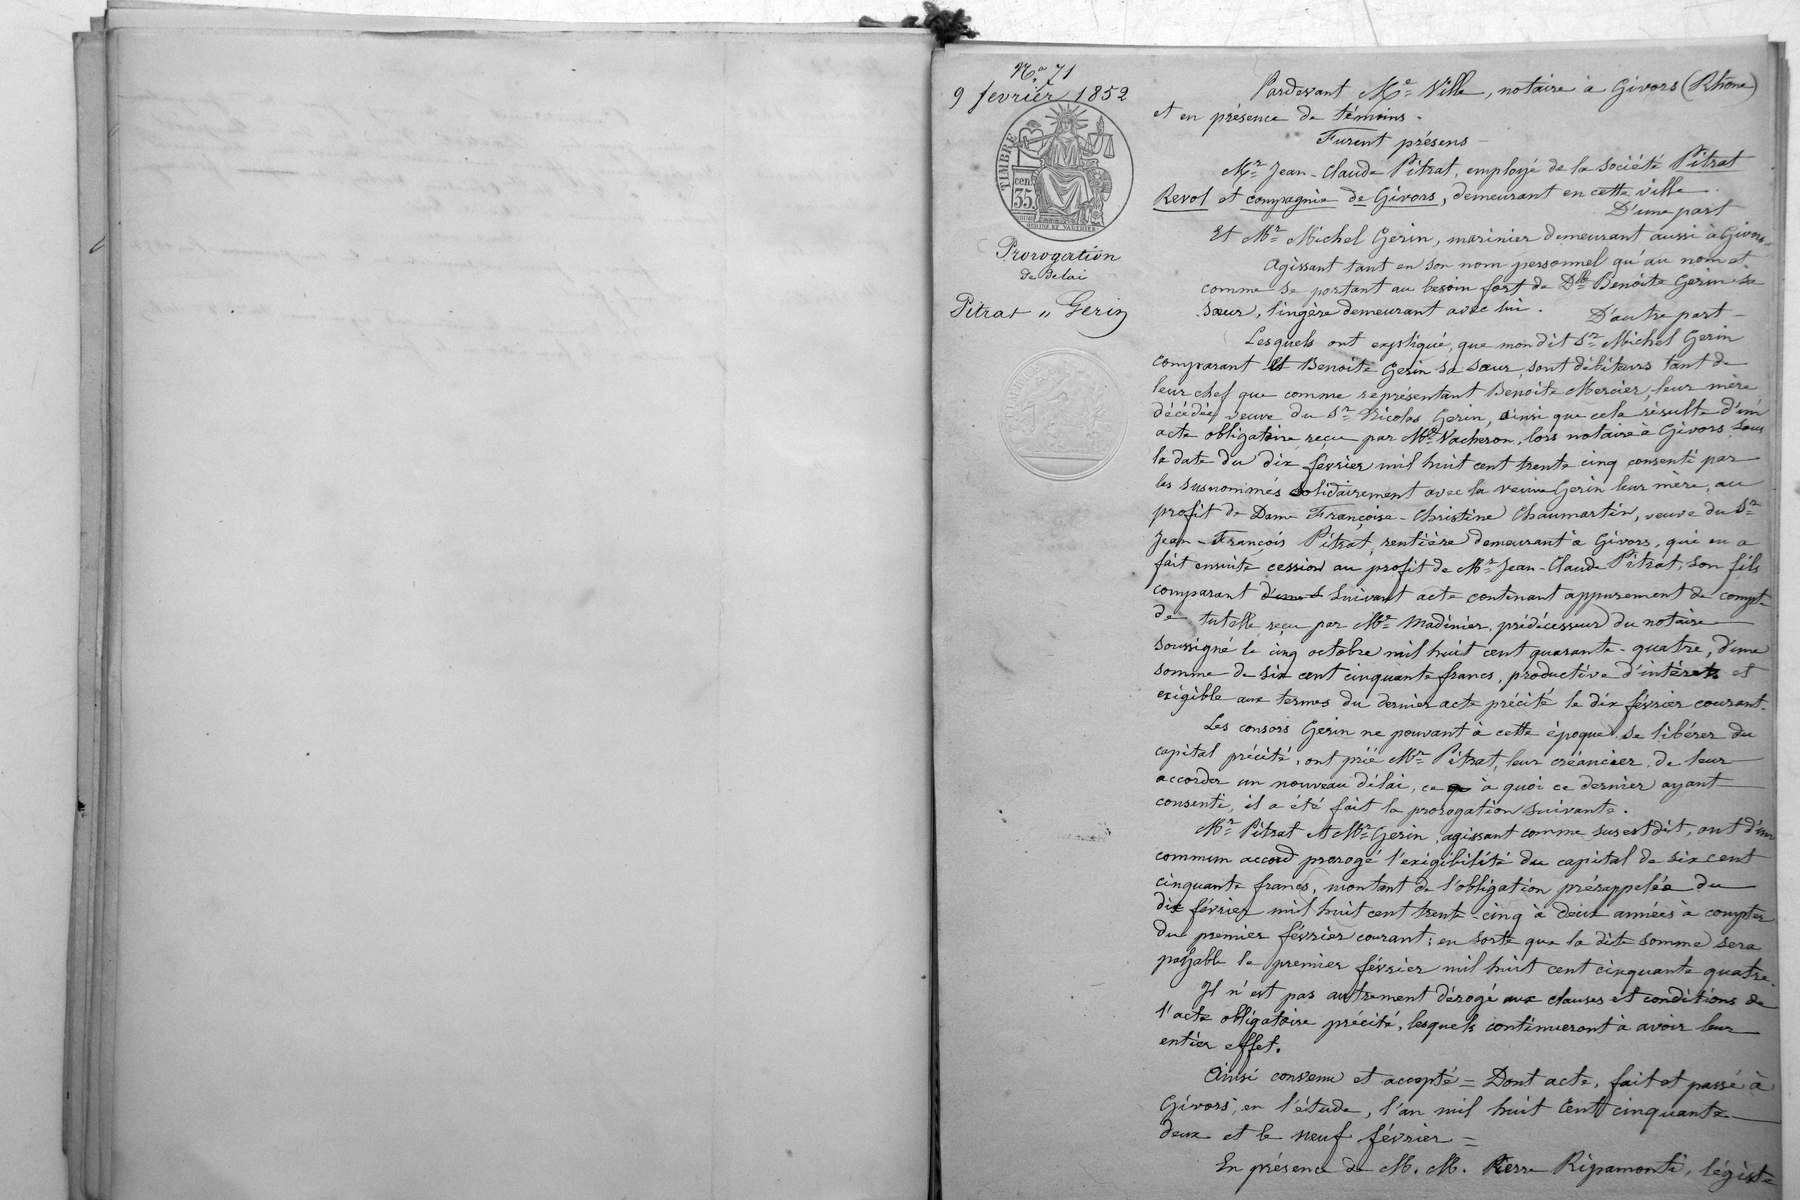 N.° 71
9 fevrier 1852
TIMBRE
cent.
35.
Prorogation
de delai
Pitrat " Gerin
Pardevant M.e Ville, notaire à Givors (Rhône)
et en présence de témoins.
Furent présens
M.r Jean-Claude Pitrat, employé de la société Pitrat
Revol et compagnie de Givors, demeurant en cette ville.
D'une part
Et M.r Michel Gerin, marinier demeurant aussi à Givors.
Agissant tant en son nom personnel qu'au nom et
comme se portant au besoin fort de D.lle Benoite Gerin sa
sœur, lingère demeurant avec lui.
D'autre part
Lesquels ont expliqué, que mondit S.r Michel Gerin
comparant et Benoite Gerin sa sœur, sont débiteurs tant de
leur chef que comme représentant Benoite Mercier, leur mère
décédée, veuve du S.r Nicolas Gerin, ainsi que cela résulte d'un
acte obligatoire reçu par M.e Vacheron, lors notaire à Givors, sous
la date du dix février mil huit cent trente cinq consenti par
les susnommés solidairement avec la veuve Gerin leur mère, au
profit de Dame Françoise-Christine Chaumartin, veuve du S.r
Jean-François Pitrat, rentière demeurant à Givors, qui en a
fait ensuite cession au profit de M.r Jean-Claude Pitrat, son fils
comparant suivant acte contenant appurement de compte
de tutelle reçu par M.e Madinier, prédécesseur du notaire
soussigné le cinq octobre mil huit cent quarante-quatre, d'une
somme de six cent cinquante francs, productive d'intérets et
exigible aux termes du dernier acte précité le dix février courant.
Les consors Gerin ne pouvant à cette époque se libérer du
capital précité, ont prié M.r Pitrat, leur créancier, de leur
accorder un nouveau délai, ce à quoi ce dernier ayant
consenti, il a été fait la prorogation suivante.
M.r Pitrat et M.r Gerin, agissant comme susest dit, ont d'un
commun accord prorogé l'exigibilité du capital de six cent
cinquante francs, montant de l'obligation prérappelée du
dix février mil huit cent trente-cinq à deux années à compter
du premier février courant; en sorte que la dite somme sera
payable le premier février mil huit cent cinquante quatre.
Il n'est pas autrement dérogé aux clauses et conditions de
l'acte obligatoire précité, lesquels continueront à avoir leur
entier effet.
Ainsi convenu et accepté = Dont acte, fait et passé à
Givors, en l'étude, l'an mil huit cent cinquante
deux et le neuf février =
En présence de M. M. Pierre Ripamonti, légiste